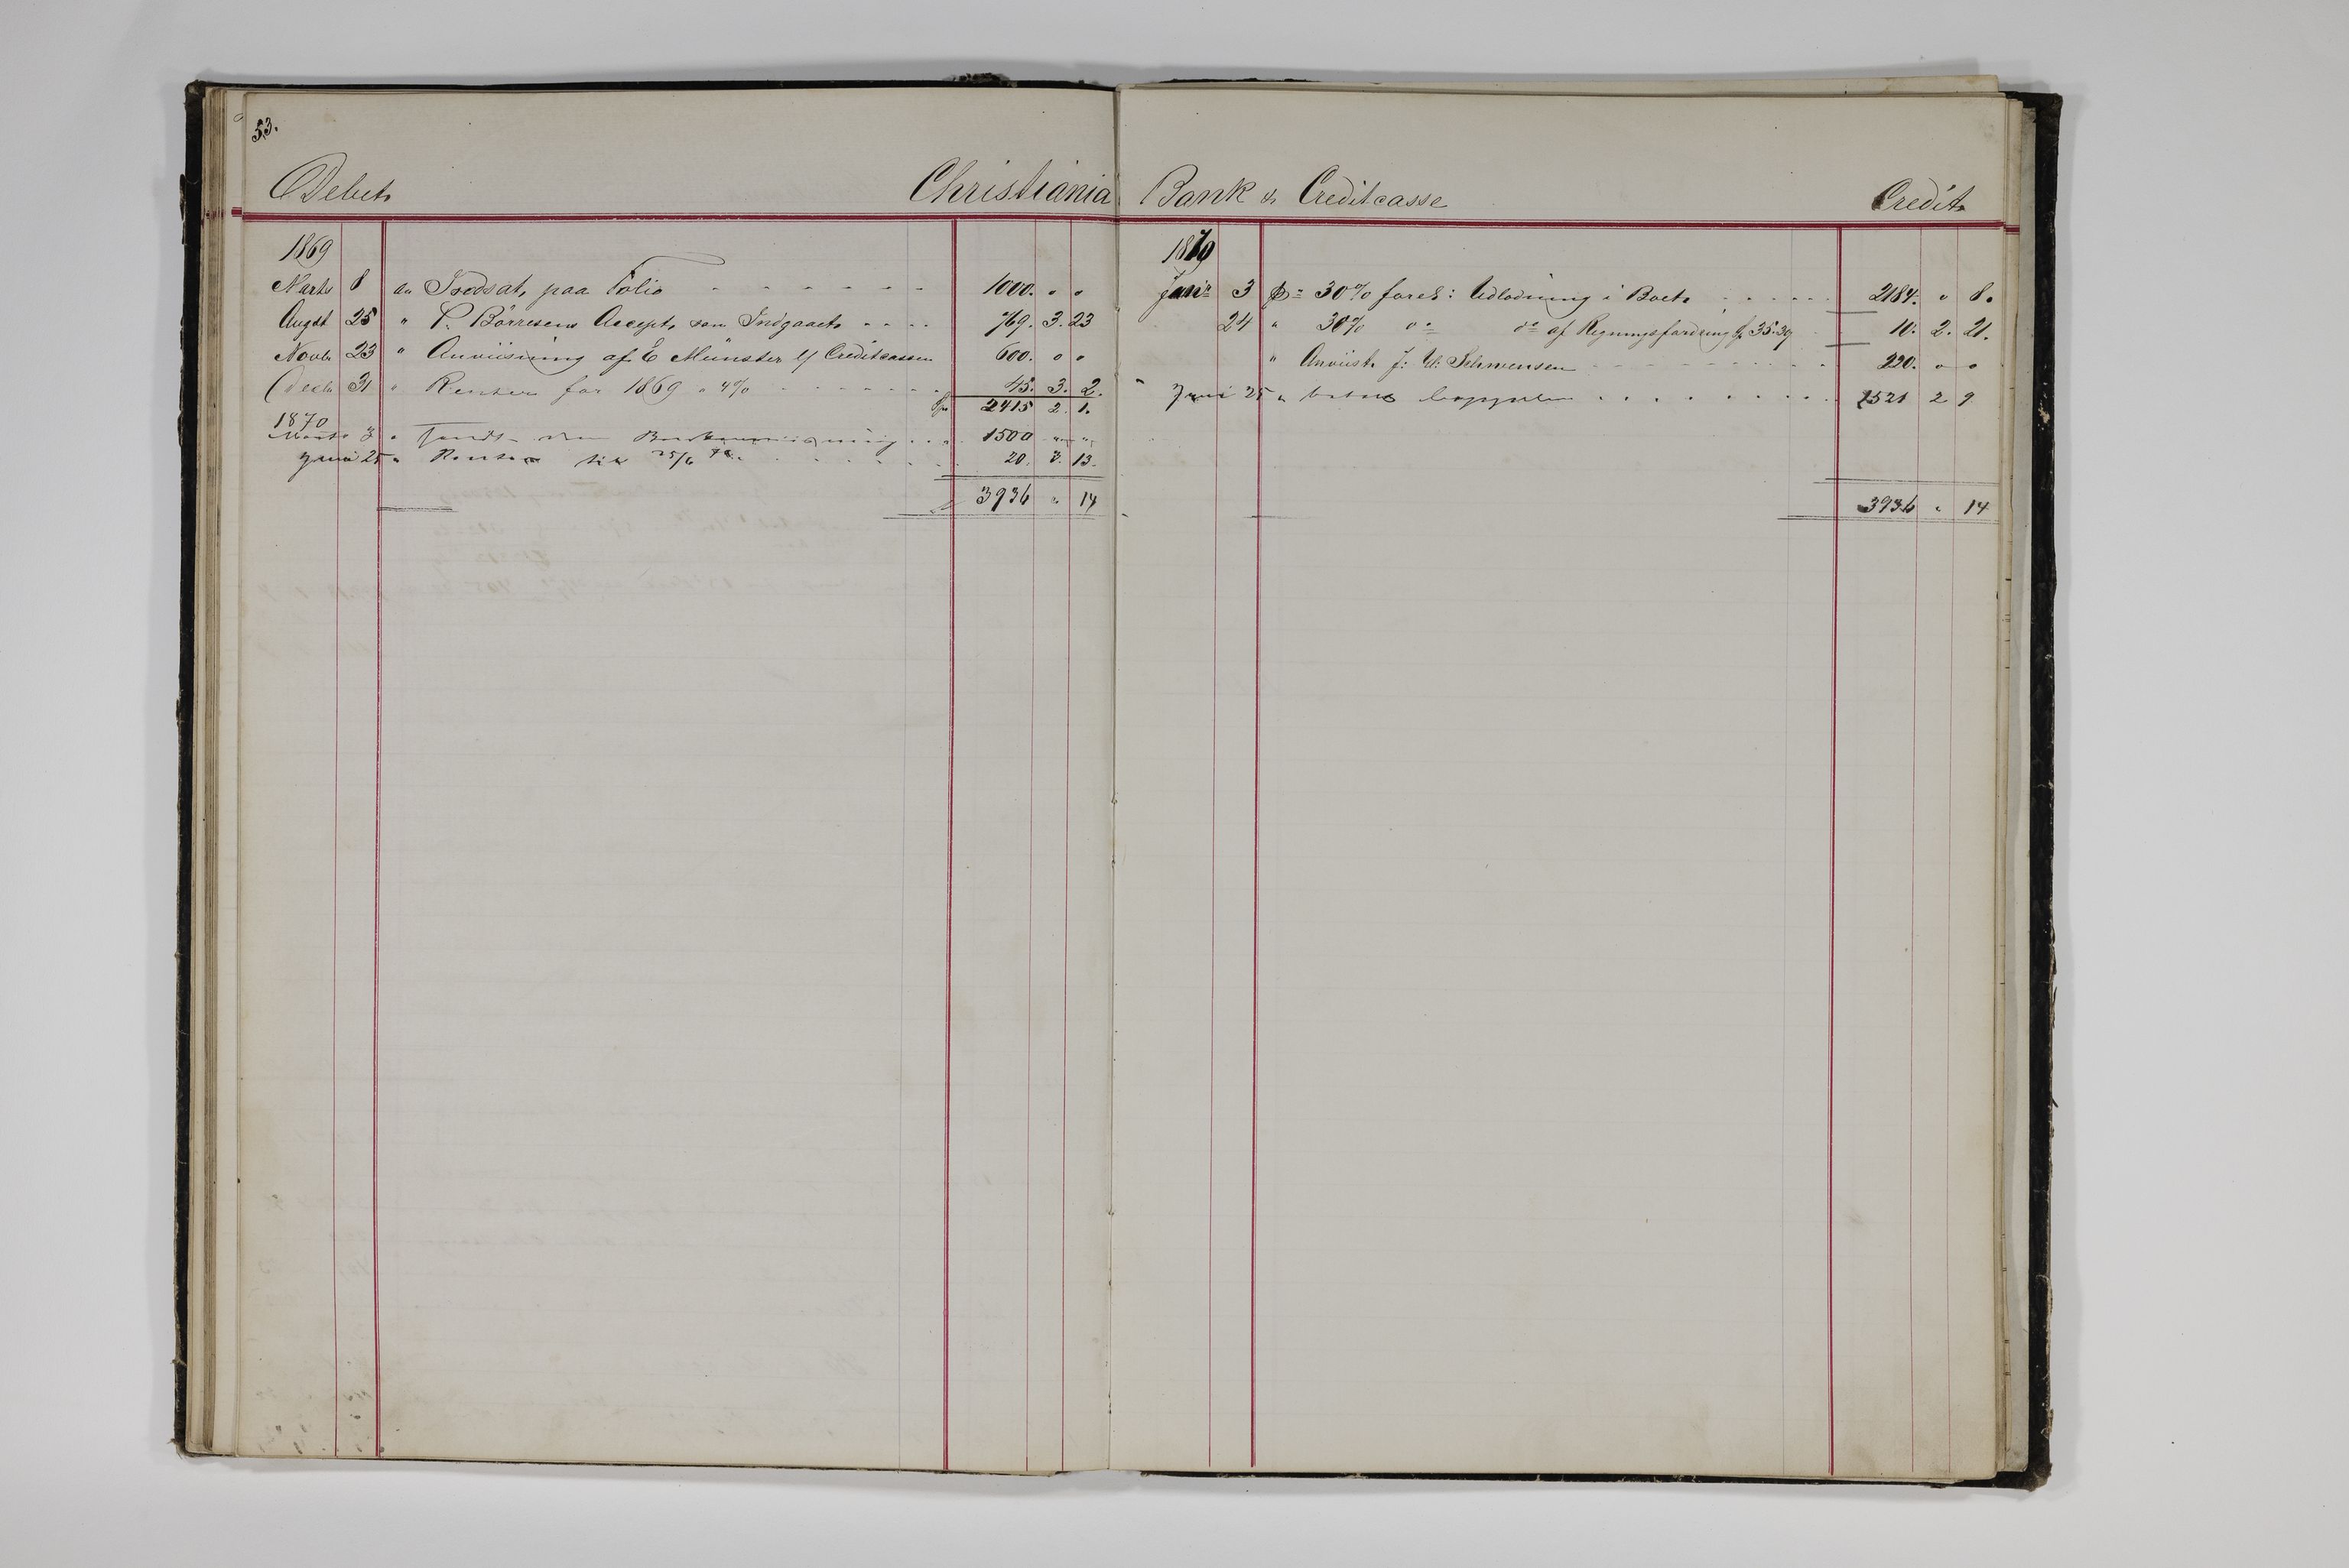 53.
Debet Christiania Bank & Creditcasse Credit
1869
Marts 8 an Indsat paa Folio 1000. " "
Augst 25 " P. Börresens Accept som Indgaaet 769. 3. 23
Novb. 23 " Anviisning af E Münster Creditcassen 600. " "
Decb. 31 " Renter for 1869 a 4% 45. 3. 2.
Spd 2415 2. 1.
1870
Marts 3 " Sendt 1500 " "
Juni 25 " Renter til 25/6 70 20. 3. 13.
3936 " 14
1870
Janr 3 pr 30% forel: Udlodning i Boet 2184. " 8.
24 " 30% do do af Regningsfordring 35.39 10. 2. 21.
" Anviist J: W: Schwensen 220. " "
Juni 25 " 1521 2 9
3936 " 14